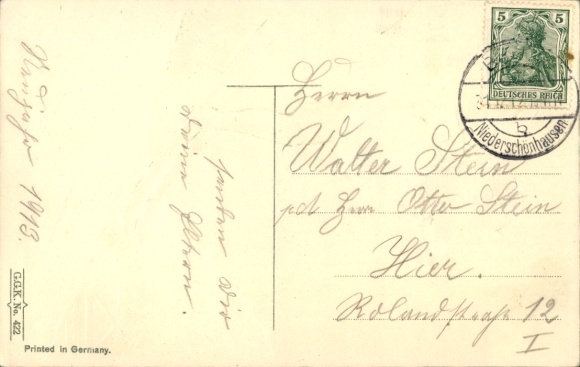 Neujahr 1913.
senden Dir
Deine Eltern.
Herrn
Walter Stein
Herrn Otto Stein
Hier.
Rolandstraße 12
I
5 5
DEUTSCHES REICH
Niederschönhausen
b
G.G.K. No. 422
Printed in Germany.